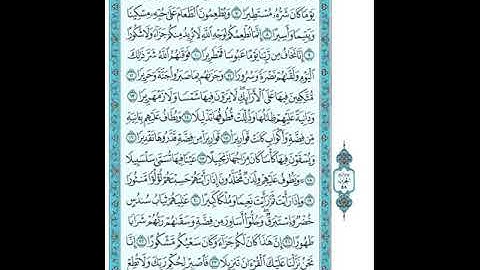 يَوْمًا كَانَ شَرُّهُۥ مُسْتَطِيرًا ۝٧ وَيُطْعِمُونَ ٱلطَّعَامَ عَلَىٰ حُبِّهِۦ مِسْكِينًا
وَيَتِيمًا وَأَسِيرًا ۝٨ إِنَّمَا نُطْعِمُكُمْ لِوَجْهِ ٱللَّهِ لَا نُرِيدُ مِنكُمْ جَزَآءً وَلَا شُكُورًا
۝٩ إِنَّا نَخَافُ مِن رَّبِّنَا يَوْمًا عَبُوسًا قَمْطَرِيرًا ۝١٠ فَوَقَىٰهُمُ ٱللَّهُ شَرَّ ذَٰلِكَ
ٱلْيَوْمِ وَلَقَّىٰهُمْ نَضْرَةً وَسُرُورًا ۝١١ وَجَزَىٰهُم بِمَا صَبَرُوا۟ جَنَّةً وَحَرِيرًا ۝١٢
مُّتَّكِـِٔينَ فِيهَا عَلَى ٱلْأَرَآئِكِ لَا يَرَوْنَ فِيهَا شَمْسًا وَلَا زَمْهَرِيرًا ۝١٣
وَدَانِيَةً عَلَيْهِمْ ظِلَٰلُهَا وَذُلِّلَتْ قُطُوفُهَا تَذْلِيلًا ۝١٤ وَيُطَافُ عَلَيْهِم بِـَٔانِيَةٍ
مِّن فِضَّةٍ وَأَكْوَابٍ كَانَتْ قَوَارِيرَا۠ ۝١٥ قَوَارِيرَا۟ مِن فِضَّةٍ قَدَّرُوهَا تَقْدِيرًا ۝١٦
وَيُسْقَوْنَ فِيهَا كَأْسًا كَانَ مِزَاجُهَا زَنجَبِيلًا ۝١٧ عَيْنًا فِيهَا تُسَمَّىٰ سَلْسَبِيلًا
۝١٨ وَيَطُوفُ عَلَيْهِمْ وِلْدَٰنٌ مُّخَلَّدُونَ إِذَا رَأَيْتَهُمْ حَسِبْتَهُمْ لُؤْلُؤًا مَّنثُورًا
۝١٩ وَإِذَا رَأَيْتَ ثَمَّ رَأَيْتَ نَعِيمًا وَمُلْكًا كَبِيرًا ۝٢٠ عَٰلِيَهُمْ ثِيَابُ سُندُسٍ
خُضْرٌ وَإِسْتَبْرَقٌ وَحُلُّوٓا۟ أَسَاوِرَ مِن فِضَّةٍ وَسَقَىٰهُمْ رَبُّهُمْ شَرَابًا
طَهُورًا ۝٢١ إِنَّ هَٰذَا كَانَ لَكُمْ جَزَآءً وَكَانَ سَعْيُكُم مَّشْكُورًا ۝٢٢ إِنَّا
نَحْنُ نَزَّلْنَا عَلَيْكَ ٱلْقُرْءَانَ تَنزِيلًا ۝٢٣ فَٱصْبِرْ لِحُكْمِ رَبِّكَ وَلَا تُطِعْ